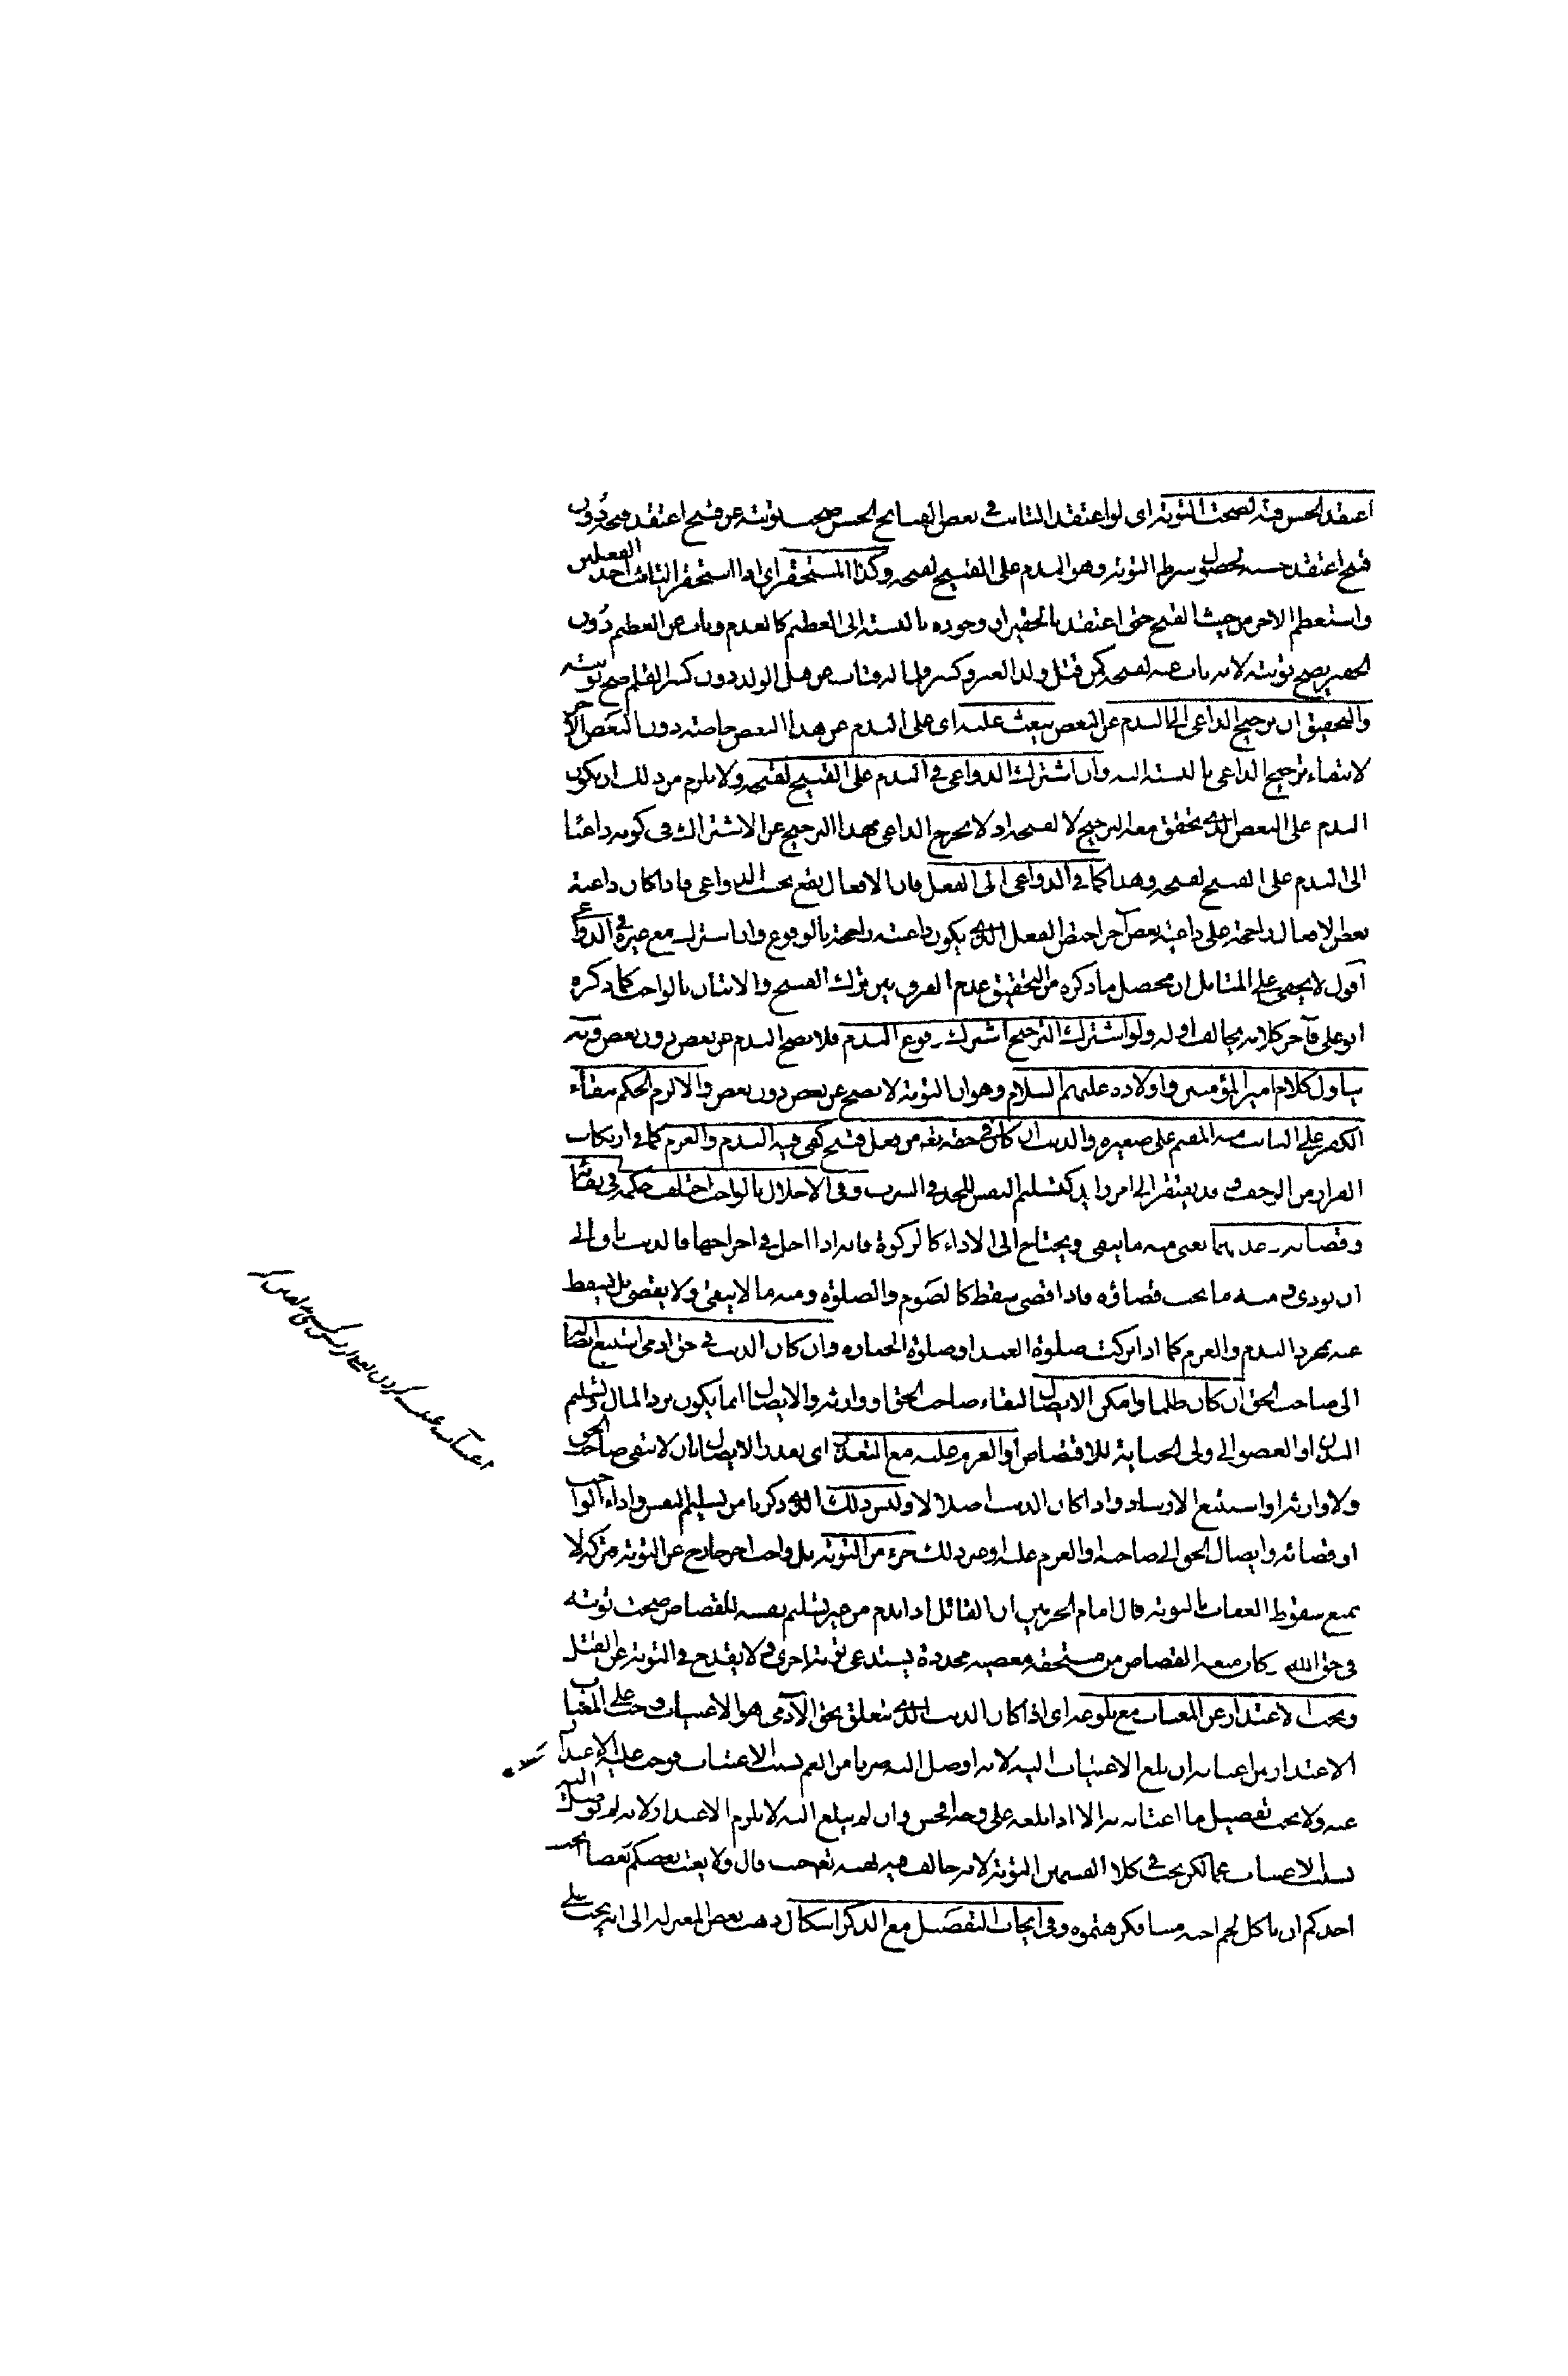 اعتقد الحسن فيه لصحت التوبة اى لو اعتقد التائب فى بعض القبايح الحسن صحت توبته عن قبيح اعتقد قبحه دون
قبيح اعتقد حسنه لحصول شرط التوبة وهو الندم على القبيح لقبحه وكذا المستحقر اى اذا استحقر التائب احد الفعلين
واستعظم الاخر من حيث القبح حتى اعتقد بالحقير ان وجوده بالنسبة الى العظيم كالعدم وتاب عن العظيم دون
الحقير يصح توبته لانه تاب عنه لقبحه كمن قتل ولد الغير وكسر قلما له فتاب عن قتل الولد دون كسر القلم صح توبته
والتحقيق ان ترجيح الداعى الى الندم عن البعض يبعث عليه اى على الندم عن هذا البعض خاصة دون البعض الاخر
لانتفاء ترجيح الداعى بالنسبة اليه وان اشترك الدواعى فى الندم على القبيح لقبحه ولا يلزم من ذلك ان يكون
الندم على البعض الذى تحقق معه الترجيح لا لقبحه اذ لا يخرج الداعى بهذا الترجيح عن الاشتراك فى كونه داعيا
الى الندم على القبيح لقبحه وهذا كما فى الدواعى الى الفعل فان الافعال يقع بحسب الدواعى فاذا كان داعية
بعض الافعال راجحة على داعية بعض آخر اختص الفعل الذى يكون داعيته راجحة بالوقوع وان اشترك مع غيره فى الدواعى
اقول لا يخفى على المتامل ان محصل ما ذكره من التحقيق عدم الفرق بين ترك القبيح والاتيان بالواجب كما ذكره
ابو على فآخر كلامه يخالف اوله ولو اشترك الترجيح اشترك وقوع الندم فلا يصح الندم عن بعض دون بعض وبه
يتاول كلام امير المؤمنين واولاده عليهم السلام وهو ان التوبة لا تصح عن بعض دون بعض والا لزم الحكم ببقاء
الكفر على التائب منه المقيم على صغيرة والذنب ان كان فى حقه تع من فعل قبيح كفى فيه الندم والعزم كما فى ارتكاب
الفرار من الزحف وقد يفتقر الى امر زايد كتسليم النفس للحد فى الشرب وفى الاخلال بالواجب اختلف حكمه فى بقائه
وقضائه وعدمهما يعنى منه ما يبقى ويحتاج الى الاداء كالزكوة فانه اذا اخل فى اخراجها فالذنب باق الى
ان يؤدى ومنه ما يجب قضاؤه فاذا قضى سقط كالصوم والصلوة ومنه ما لا يبقى ولا يقضى بل يسقط
عنه بمجرد الندم والعزم كما اذا تركت صلوة العيد او صلوة الجنازة وان كان الذنب فى حق ادمى استتبع ايصاله
الى صاحب الحق ان كان ظلما وامكن الايصال لبقاء صاحب الحق او وارثه والايصال انما يكون برد المال او تسليم
البدن او العضو الى ولى الجناية للاقتصاص او العزم عليه مع التعذر اى تعذر الايصال بان لا يبقى صاحب الحق
ولا وارثه او استتبع الارشاد اذا كان الذنب اضلالا وليس ذلك الذى ذكرنا من تسليم النفس واداء الواجب
او قضائه وايصال الحق الى صاحبه او العزم عليه او غير ذلك جزء من التوبة بل واجب اخر خارج عن التوبة فتركه لا
يمنع سقوط العقاب بالتوبة قال امام الحرمين ان القاتل اذا ندم من غير تسليم نفسه للقصاص صحت توبته
فى حق الله وكان منعه القصاص من مستحقه معصية مجددة يستدعى توبة اخرى ولا يقدح فى التوبة عن القتل
ويجب الاعتذار عن المغتاب مع بلوغه اى اذا كان الذنب الذى تتعلق بحق الآدمى هو الاغتياب وجب على المغتاب
الاعتذار من اغتابه ان بلغ الاغتياب اليه لانه اوصل اليه ضربا من الغم بسبب الاغتياب فوجب عليه الاعتذار
عنه ولا يجب تفصيل ما اغتابه به الا اذا بلغه على وجه افحش وان لم يبلغ اليه لا يلزم الاعتذار لانه لم يوصل اليه
بسبب الاغتياب غما لكن يجب فى كلا القسمين التوبة لانه خالف فيه نهيه تع حيث قال ولا يغتب بعضكم بعضا ايحب
احدكم ان ياكل لحم اخيه ميتا فكرهتموه وفى ايجاب التفصيل مع الذكر اشكال ذهب بعض المعتزلة الى انه يجب على